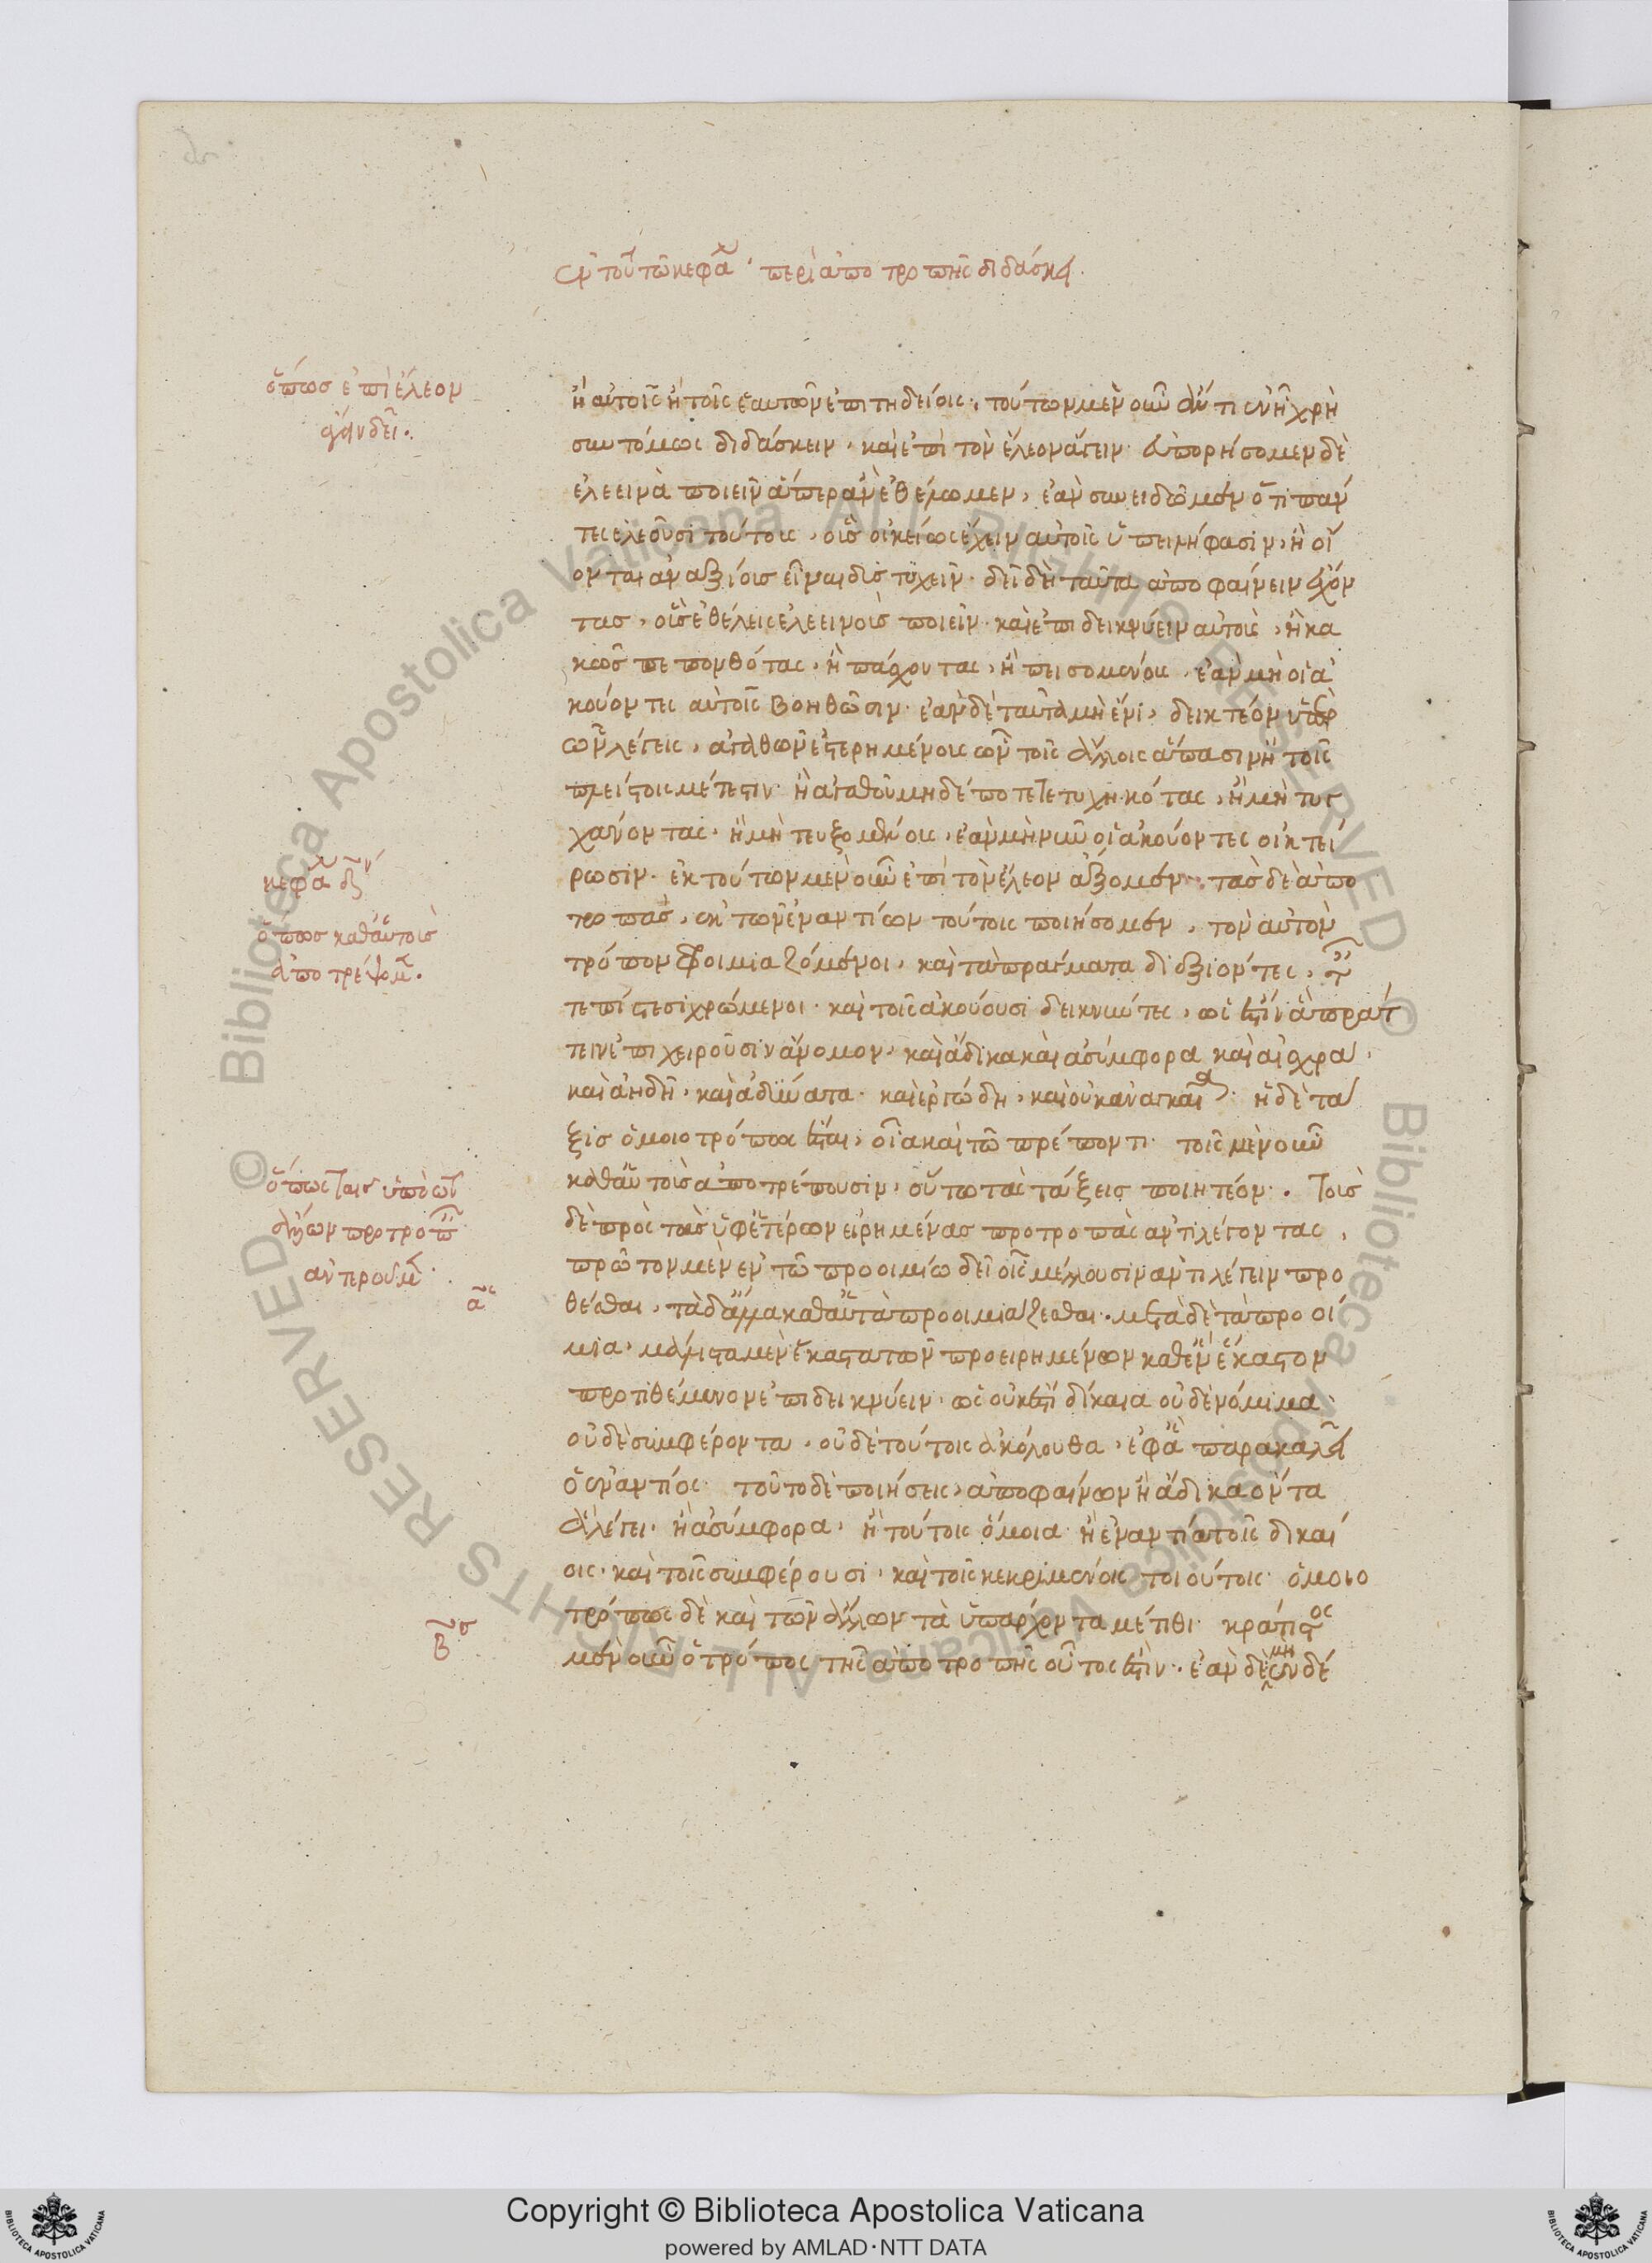 ἐν τούτω κεφαλ περὶ ἀποτροπῆς διδάσκει.
ὅπως ἐπὶ ἔλεον
ἄγειν δεῖ.
ἢ αὐτοῖς ἢ τοῖς ἑαυτῶν ἐπιτηδείοις. τούτων μὲν οὖν ἄν τι ἐνῆ χρὴ
συντόμως διδάσκειν, καὶ ἐπὶ τὸν ἔλεον ἄγειν· εὐπορήσομεν δὲ
ἐλεεινὰ ποιεῖν ἅπερ ἂν ἐθέλωμεν, ἐὰν συνειδῶμεν ὅτι πάν
τες ἐλεοῦσι τούτους, οἷς οἰκείως ἔχειν αὐτοῖς ὑπειλήφασιν, ἢ οἴ
ονται ἀναξίους εἶναι δυστυχεῖν· δεῖ δὴ ταῦτα ἀποφαίνειν ἔχον
τας, οὓς ἐθέλεις ἐλεεινοὺς ποιεῖν· καὶ ἐπιδεικνύειν αὐτοὺς, ἢ κα
κῶς πεπονθότας, ἢ πάσχοντας, ἢ πεισομένους, ἐὰν μὴ οἱ ἀ
κούοντες αὐτοῖς βοηθῶσιν· ἐὰν δὲ ταῦτα μὴ ἔνι, δεικτέον ὑπὲρ
ὧν λέγεις, ἀγαθῶν ἐστερημένους ὧν τοῖς ἄλλοις ἅπασιν ἢ τοῖς
πλείστοις μέτεστιν· ἢ ἀγαθοῦ μηδέποτε τετυχηκότας, ἢ μὴ τυγ
χάνοντας, ἢ μὴ τευξομένους, ἐὰν μὴ νῦν οἱ ἀκούοντες οἰκτεί
ρωσιν· ἐκ τούτων μὲν οὖν ἐπὶ τὸν ἔλεον ἄξομεν. τὰς δὲ ἀπο
κεφαλ
ὅπως καθ' αὑτοὺς
ἀποτρέψομεν.
τροπὰς, ἐκ τῶν ἐναντίων τούτοις ποιήσομεν, τὸν αὐτὸν
τρόπον φροιμιαζόμενοι, καὶ τὰ πράγματα διεξιόντες, ταῖς
τε πίστεσι χρώμενοι· καὶ τοῖς ἀκούουσι δεικνύντες, ὡς ἐστὶν ἃ πράτ
τειν ἐπιχειροῦσιν ἄνομα, καὶ ἄδικα καὶ ἀσύμφορα καὶ αἰσχρὰ,
καὶ ἀηδῆ, καὶ ἀδύνατα. καὶ ἐργώδη, καὶ οὐκ ἀναγκαῖα· ἡ δὲ τά
ξις ὁμοιοτρόπως ἔσται, οἵα καὶ τῶ πρέποντι· τοῖς μὲν οὖν
καθ' αὑτοὺς ἀποτρέπουσιν, οὕτω τὰς τάξεις ποιητέον. Τοὺς
ὅπως ταῖς ὑπὸ τῶν
ἄλλων προτροπῶν
ἀντεροῦμεν.
δὲ πρὸς τὰς ὑφ' ἑτέρων εἰρημένας προτροπὰς ἀντιλέγοντας,
πρῶτον μὲν ἐν τῶ προοιμίω δεῖ οἷς μέλλουσιν ἀντιλέγειν προ
α
θέσθαι, τὰ δ' ἄλλα καθ' αὑτὰ προοιμιάζεσθαι. μετὰ δὲ τὰ προοί
μια, μάλιστα μὲν ἕκαστα τῶν προειρημένων καθ' ἓν ἕκαστον
προτιθέμενον ἐπιδεικνύειν, ὡς οὐκ ἔστι δίκαια οὐδὲ νόμιμα
οὐδὲ συμφέροντα, οὐδὲ τούτοις ἀκόλουθα, ἐφ' ἃ παρακαλεῖ
ὁ ἐναντίος· τοῦτο δὲ ποιήσεις, ἀποφαίνων ἢ ἄδικα ὄντα
ἃ λέγει, ἢ ἀσύμφορα, ἢ τούτοις ὅμοια· ἢ ἐναντία τοῖς δικαί
οις, καὶ τοῖς συμφέρουσι, καὶ τοῖς κεκριμένοις τοιούτοις· ὁμοιο
τρόπως δὲ καὶ τῶν ἄλλων τὰ ὑπάρχοντα μέτιθι· κράτιστος
β
μὲν οὖν ὁ τρόπος τῆς ἀποτροπῆς οὗτος ἐστίν. ἐὰν δὲ μὴ ἐνδέ
Copyright © Biblioteca Apostolica Vaticana
powered by AMLAD·NTT DATA